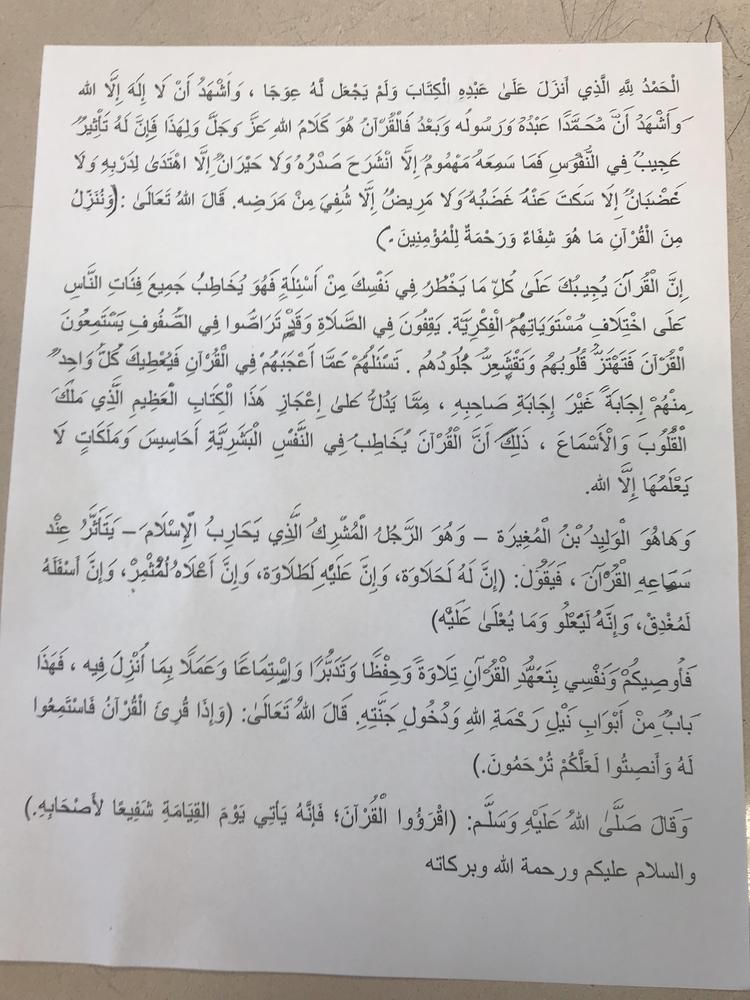 الْحَمْدُ لِلَّهِ الَّذِي أَنزَلَ عَلَىٰ عَبْدِهِ الْكِتَابَ وَلَمْ يَجْعَل لَّهُ عِوَجَا ، وَأَشْهَدُ أَنْ لَا إِلَهَ إِلَّا الله
وَأَشْهَدُ أَنَّ مُحَمَّدًا عَبْدُهُ وَرَسُولُه وَبَعْدُ فَالْقُرْآنُ هُوَ كَلَامُ اللهِ عَزَّ وَجَلَّ وَلِهَذَا فَإِنَّ لَهُ تَأْثِيرٌ
عَجِيبٌ فِي النُّفُوسِ فَمَا سَمِعَهُ مَهْمُومٌ إِلَّا انْشَرَحَ صَدْرُهُ وَلَا حَيْرَانٌ إِلَّا اهْتَدَىٰ لِدَرْبِهِ وَلَا
غَضْبَانٌ إِلَا سَكَتَ عَنْهُ غَضَبُهُ وَلَا مَرِيضٌ إِلَّا شُفِيَ مِنْ مَرَضِه. قَالَ اللهُ تَعَالَىٰ :(وَنُنَزِّلُ
مِنَ الْقُرْآنِ مَا هُوَ شِفَاءٌ وَرَحْمَةٌ لِلْمُؤْمِنِينَ.)
إِنَّ الْقُرآنَ يُجِيبُكَ عَلَىٰ كُلِّ مَا يَخْطُرُ فِي نَفْسِكَ مِنْ أَسْئِلَةٍ فَهُوَ يُخَاطِبُ جَمِيعَ فِئَاتِ النَّاسِ
عَلَى اخْتِلَافِ مُسْتَوَيَاتِهِمُ الْفِكْرِيَّةِ. يَقِفُونَ فِي الصَّلَاةِ وَقَدْ تَرَاصُّوا فِي الصُّفُوفِ يَسْتَمِعُونَ
الْقُرْآنَ فَتَهْتَزُّ قُلُوبَهُم وَتَقْشَعِرُّ جُلُودُهُم . تَسْئَلُهُمْ عَمَّا أَعْجَبَهُمْ فِي الْقُرْآنِ فَيُعْطِيكَ كُلُّ وَاحِدٍ
مِنهُمْ إِجَابَةً غَيْرَ إِجَابَةِ صَاحِبِهِ ، مِمَّا يَدُلُّ عَلىٰ إِعْجَازِ هَذَا الْكِتَابِ الْعَظِيمِ الَّذِي مَلَكَ
الْقُلُوبَ وَالْأَسْمَاعَ ، ذَلِكَ أَنَّ الْقُرْآنَ يُخَاطِبُ فِي النَّفْسِ الْبَشَرِيَّةِ أَحَاسِيسَ وَمَلَكَاتٍ لَا
يَعْلَمُهَا إِلَّا الله.
وَهَاهُوَ الْوَلِيدُ بْنُ الْمُغِيرَة – وَهُوَ الرَّجُلُ الْمُشْرِكُ الَّذِي يَحَارِبُ الْإِسْلَامَ – يَتَأَثَّرُ عِنْد
سَمَاعِهِ الْقُرْآنَ ، فَيَقُوْل: (إِنَّ لَهُ لَحَلَاوَة، وَإِنَّ عَلَيْهِ لَطَلَاوَة، وَإِنَّ أَعْلَاهُ لَمُثْمِرْ، وَإِنَّ أَسْفَلَهُ
لَمُغْدِقْ، وَإِنَّهُ لَيَعْلُو وَمَا يُعْلَىٰ عَلَيْه)
فَأُوصِيكُمْ وَنَفْسِي بِتَعَهُّدِ الْقُرْآنِ تِلَاوَةً وَحِفْظًا وَتَدَبُّرًا وَإِسْتِمَاعًا وَعَمَلًا بِمَا أُنْزِلَ فِيه ، فَهَذَا
بَابٌ مِنْ أَبْوَابِ نَيْلِ رَحْمَةِ اللهِ وَدُخُولِ جَنَّتِهِ. قَالَ اللهُ تَعَالَىٰ: (وَإِذَا قُرِئَ الْقُرْآنُ فَاسْتَمِعُوا
لَهُ وَأَنصِتُوا لَعَلَّكُمْ تُرْحَمُونَ.)
وَقَالَ صَلَّىٰ اللهُ عَلَيْهِ وَسَلَّم: (اقْرَؤُوا الْقُرْآنَ؛ فَإِنَّهُ يَأتِي يَوْمَ القِيَامَةِ شَفِيعًا لأَصْحَابِهِ.)
والسلام عليكم ورحمة الله وبركاته